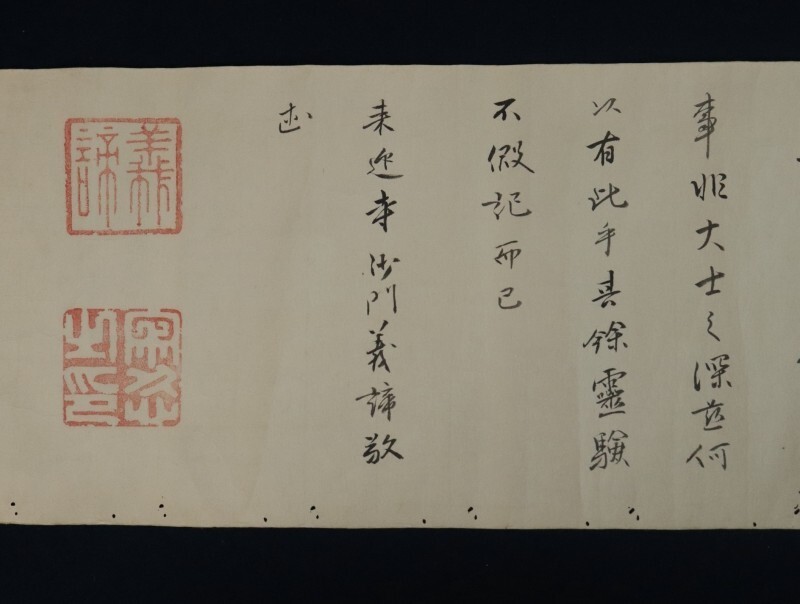 事非大士之深慈何
以有此乎其餘靈驗
不假記而已
来迎寺沙門義諦敬
述
義諦